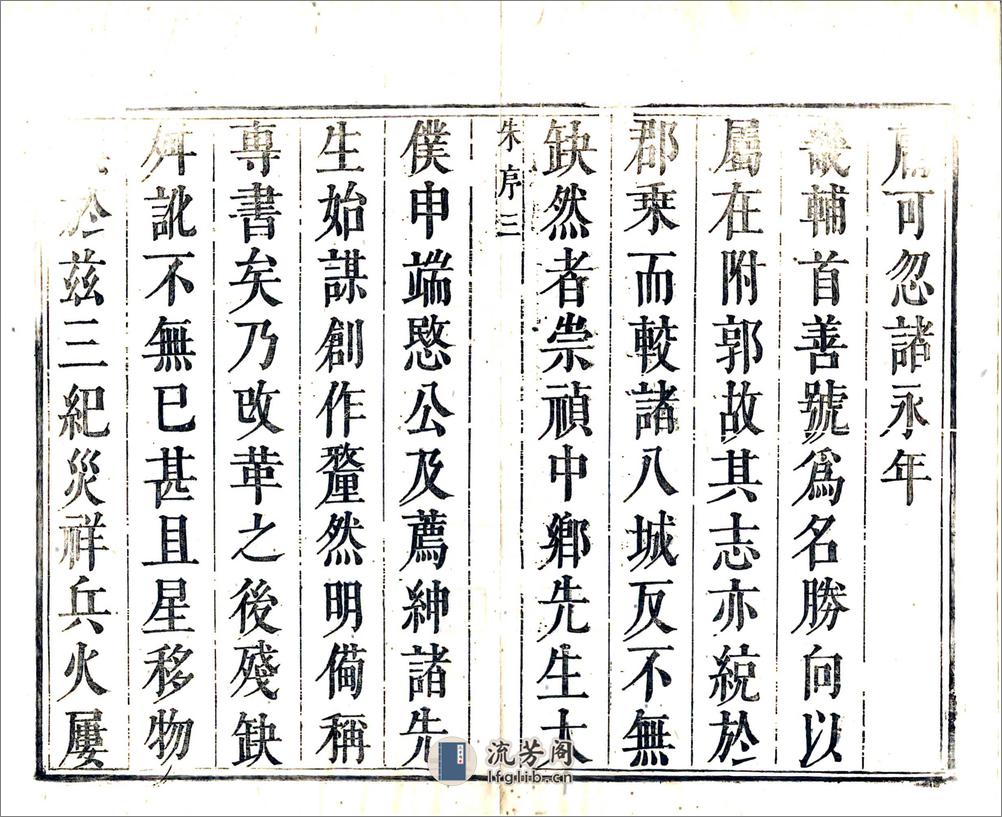 可忽諸永年
畿輔首善號爲名勝向以
屬在附郭故其志亦統於
郡乗而較諸八城反不無
缺然者崇禎中鄉先生太
朱序 三
僕申端愍公及薦紳諸先
生始謀創作釐然明備稱
專書矣乃改革之後殘缺
舛訛不無已甚且星移物
於兹三紀災祥兵火屢
流芳阁
lfglib.cn